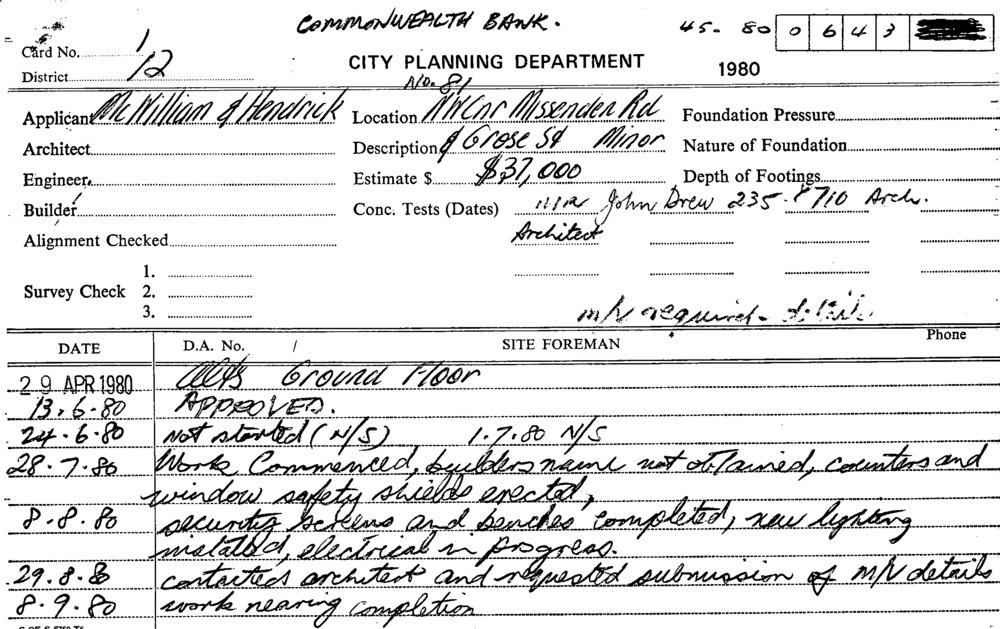 COMMONWEALTH BANK.
45. 80 0 6 4 3
Card No. 1
District 12
CITY PLANNING DEPARTMENT 1980
No. 81
Applicant McWilliam & Hendrick
Location NW Cnr Missenden Rd
Foundation Pressure
Architect
Description & Grose St Minor
Nature of Foundation
Engineer
Estimate $ $37,000
Depth of Footings
Builder
Conc. Tests (Dates) John Drew 235. 8710 Arch.
Architect
Alignment Checked
Survey Check
1.
2.
3.
m/v required details
DATE D.A. No. / SITE FOREMAN Phone
29 APR 1980 Alts Ground Floor
13.6.80 APPROVED.
24.6.80 Not started (N/S) 1.7.80 N/S
28.7.80 Work Commenced, builders name not obtained, counters and
window safety shields erected,
8.8.80 security screens and benches completed, new lighting
installed, electrical in progress.
29.8.80 contacted architect and requested submission of m/v details
8.9.80 work nearing completion